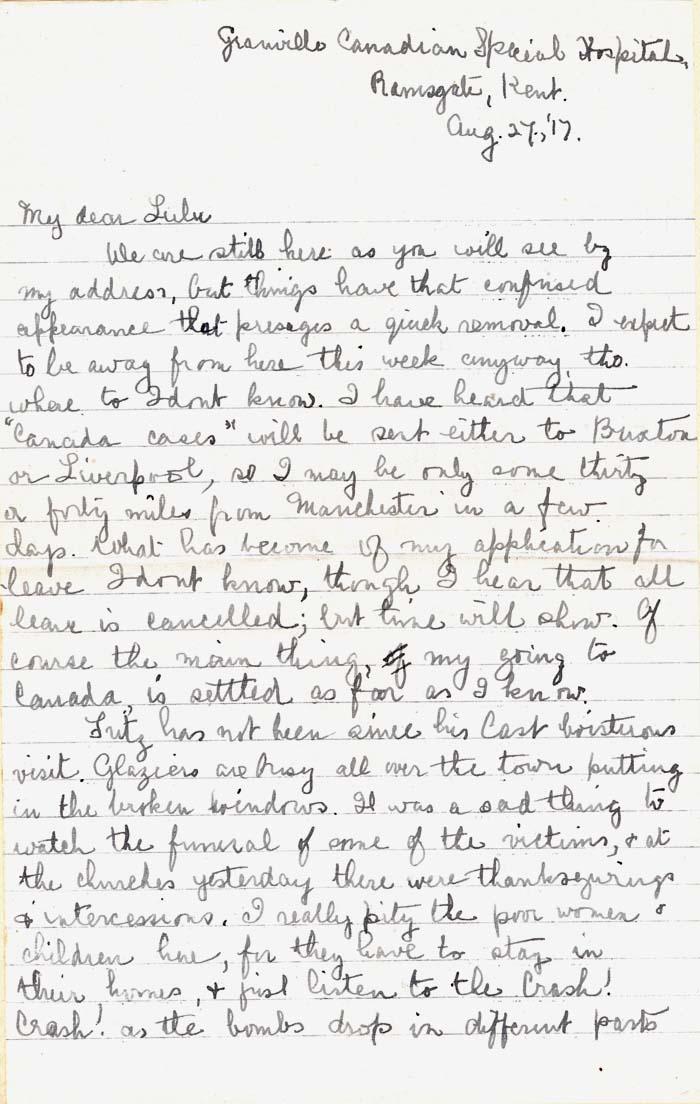 Granville Canadian Special Hospital,
Ramsgate, Kent.
Aug. 27, '17.
My dear Lulu
We are still here as you will see by
my address, but things have that confused
appearance that presages a quick removal. I expect
to be away from here this week anyway, tho.
where to I dont know. I have heard that
"Canada cases" will be sent either to Buxton
or Liverpool, so I may be only some thirty
or forty miles from Manchester in a few
days. What has become of my application for
leave I dont know, though I hear that all
leave is cancelled; but time will show. Of
course the main thing, of my going to
Canada, is settled as far as I know.
Fritz has not been since his last boisterous
visit. Glaziers are busy all over the town putting
in the broken windows. It was a sad thing to
watch the funeral of some of the victims, & at
the churches yesterday there were thanksgivings
& intercessions. I really pity the poor women &
children here, for they have to stay in
their homes, & just listen to the Crash!
Crash! as the bombs drop in different parts